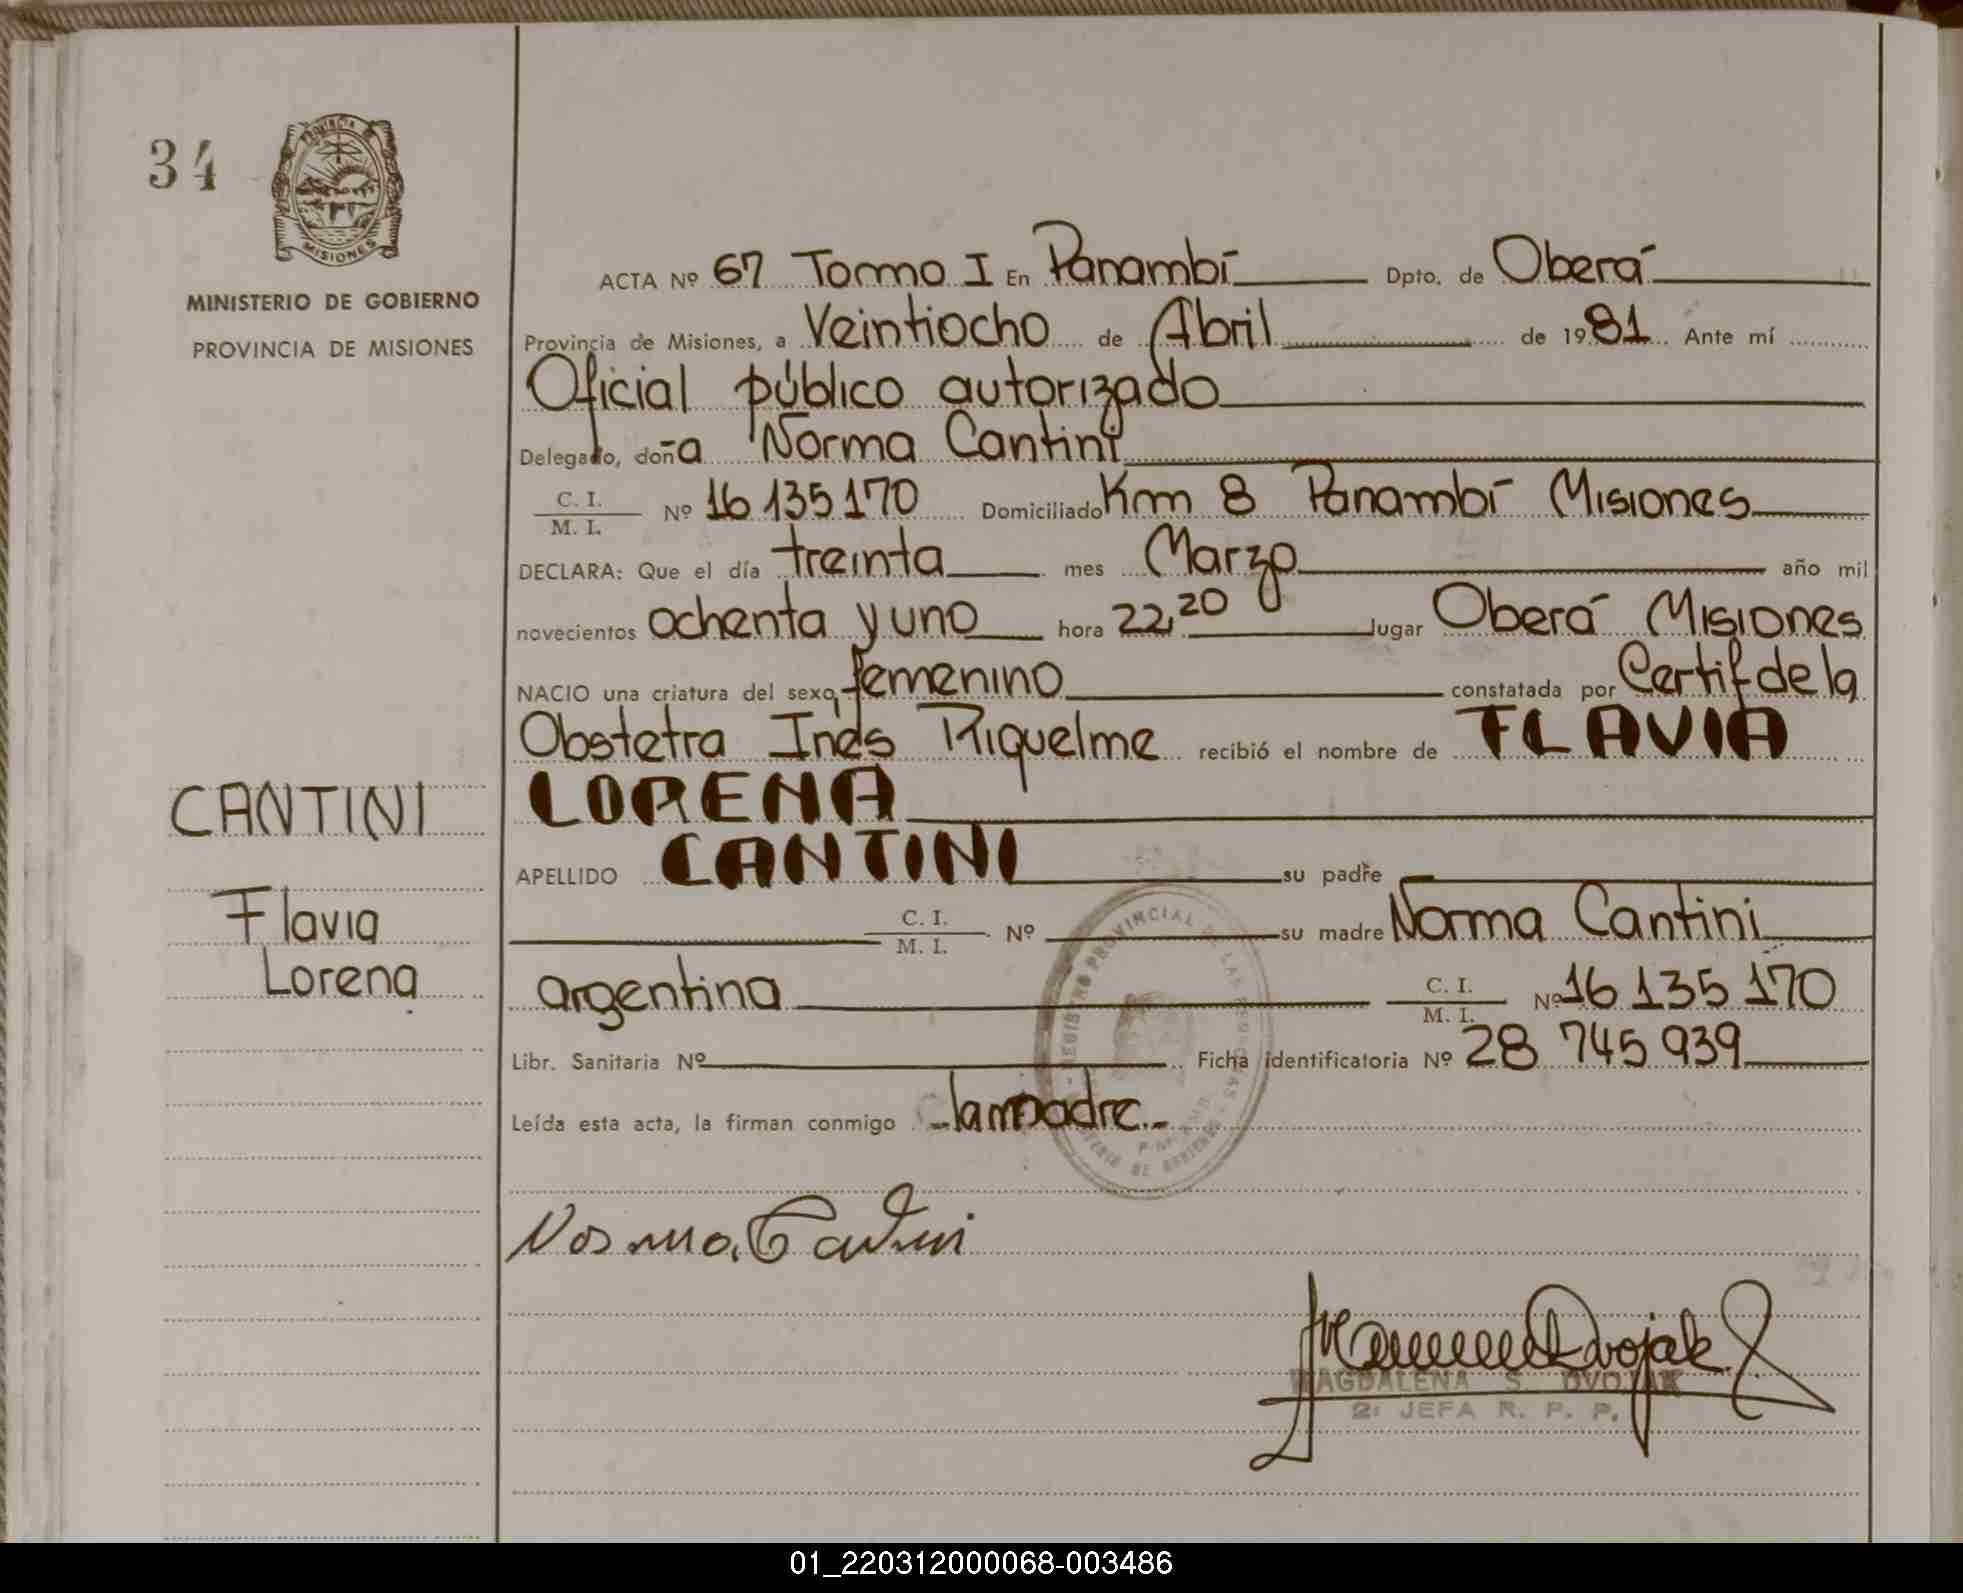 34
PROVINCIA
MISIONES
MINISTERIO DE GOBIERNO
PROVINCIA DE MISIONES
ACTA Nº 67 Tomo I En Panambí Dpto. de Oberá
Provincia de Misiones, a Veintiocho de Abril de 1981 Ante mí
Oficial público autorizado
Delegado, doña Norma Cantini
C. I.
M. I. Nº 16 135 170 Domiciliado Km 8 Panambí Misiones
DECLARA: Que el día treinta mes Marzo año mil
novecientos ochenta y uno hora 22,20 lugar Oberá Misiones
NACIO una criatura del sexo femenino constatada por Certif de la
Obstetra Inés Riquelme recibió el nombre de FLAVIA
LORENA
APELLIDO CANTINI su padre
C. I.
M. I. Nº su madre Norma Cantini
argentina C. I.
M. I. Nº 16 135 170
Libr. Sanitaria Nº Ficha identificatoria Nº 28 745 939
Leída esta acta, la firman conmigo - la madre.-
CANTINI
Flavia
Lorena
REGISTRO PROVINCIAL DE LAS PERSONAS
Norma Cantini
Dvojak
MAGDALENA S. DVOJAK
2: JEFA R. P. P.
01_220312000068-003486